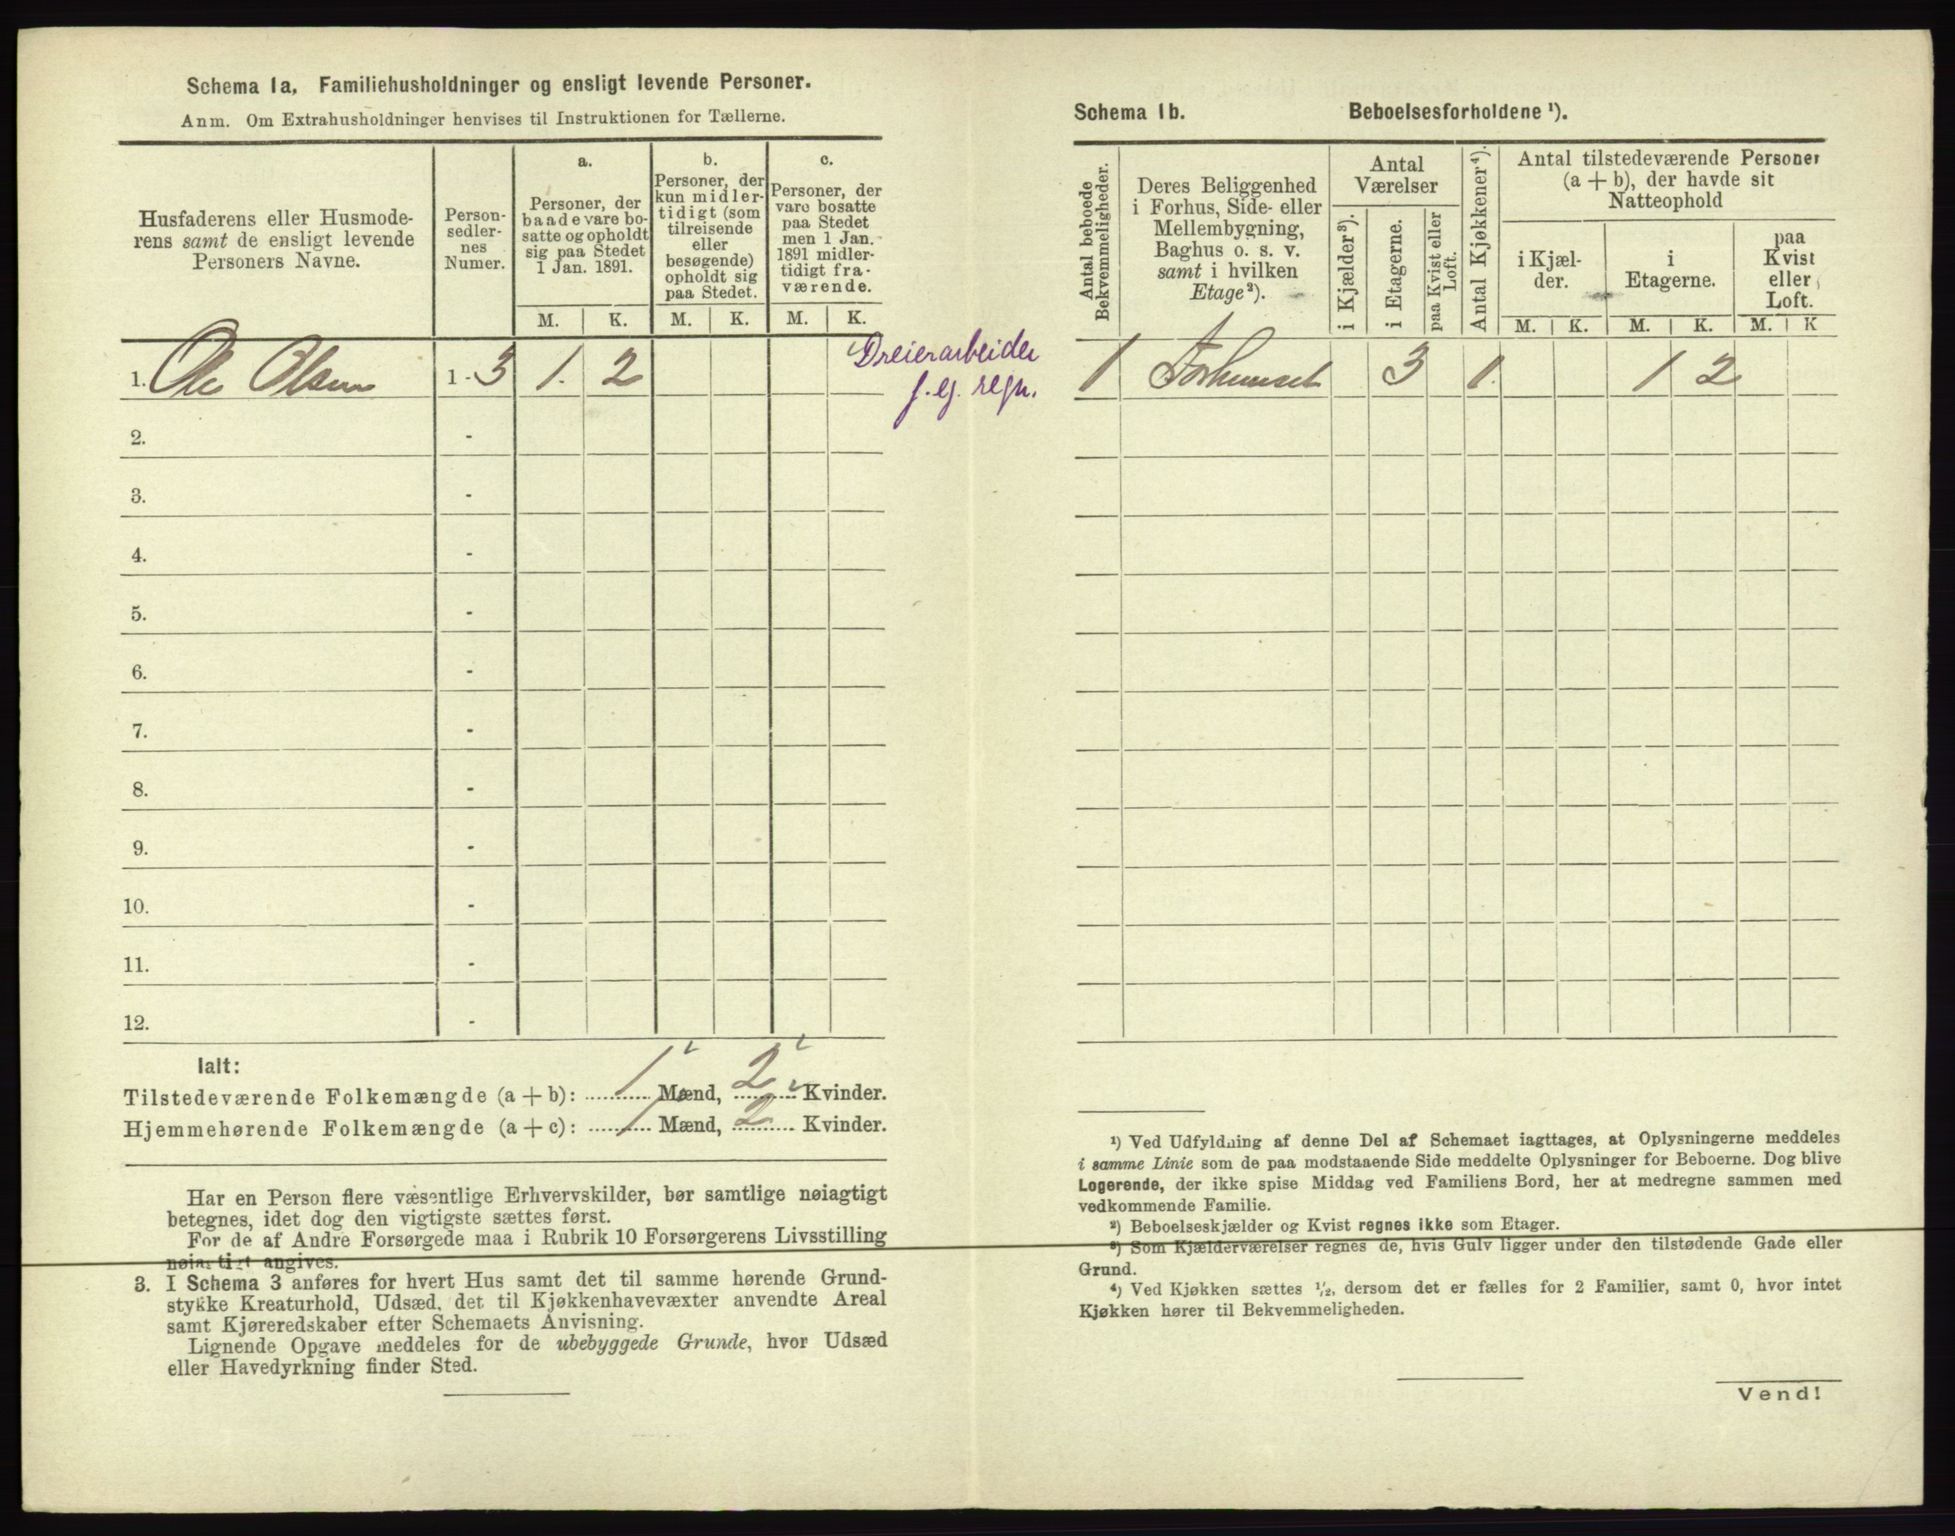 Schema 1a. Familiehusholdninger og ensligt levende Personer.
Anm. Om Extrahusholdninger henvises til Instruktionen for Tællerne.
Husfaderens eller Husmode-
rens samt de ensligt levende
Personers Navne.
Person-
sedler-
nes
Numer.
a.
Personer, der
baade vare bo-
satte og opholdt
sig paa Stedet
1 Jan. 1891.
b.
Personer, der
kun midler-
tidigt (som
tilreisende
eller
besøgende)
opholdt sig
paa Stedet.
c.
Personer, der
vare bosatte
paa Stedet
men 1 Jan.
1891 midler-
tidigt fra-
værende.
M. K. M. K. M. K.
1. Ole Olsen 1 - 3 1. 2
Dreierarbeider
f. eg. regn.
2. -
3. -
4. -
5. -
6. -
7. -
8. -
9. -
10. -
11. -
12. -
Ialt:
Tilstedeværende Folkemængde (a + b): 1 Mænd, 2 Kvinder.
Hjemmehørende Folkemængde (a + c): 1 Mænd, 2 Kvinder.
Har en Person flere væsentlige Erhvervskilder, bør samtlige nøiagtigt
betegnes, idet dog den vigtigste sættes først.
For de af Andre Forsørgede maa i Rubrik 10 Forsørgerens Livsstilling
nøiagtigt angives.
3. I Schema 3 anføres for hvert Hus samt det til samme hørende Grund-
stykke Kreaturhold, Udsæd, det til Kjøkkenhavevæxter anvendte Areal
samt Kjøreredskaber efter Schemaets Anvisning.
Lignende Opgave meddeles for de ubebyggede Grunde, hvor Udsæd
eller Havedyrkning finder Sted.
Schema 1b. Beboelsesforholdene ¹).
Antal beboede
Bekvemmeligheder.
Deres Beliggenhed
i Forhus, Side- eller
Mellembygning,
Baghus o. s. v.
samt i hvilken
Etage²).
Antal
Værelser
i Kjælder³).
i Etagerne.
paa Kvist eller
Loft.
Antal Kjøkkener⁴).
Antal tilstedeværende Personer
(a + b), der havde sit
Natteophold
i Kjæl-
der.
i
Etagerne.
paa
Kvist
eller
Loft.
M. K. M. K. M. K
1 Forhuset 3 1. 1 2
¹) Ved Udfyldning af denne Del af Schemaet iagttages, at Oplysningerne meddeles
i samme Linie som de paa modstaaende Side meddelte Oplysninger for Beboerne. Dog blive
Logerende, der ikke spise Middag ved Familiens Bord, her at medregne sammen med
vedkommende Familie.
²) Beboelseskjælder og Kvist regnes ikke som Etager.
³) Som Kjælderværelser regnes de, hvis Gulv ligger under den tilstødende Gade eller
Grund.
⁴) Ved Kjøkken sættes ½, dersom det er fælles for 2 Familier, samt 0, hvor intet
Kjøkken hører til Bekvemmeligheden.
Vend!